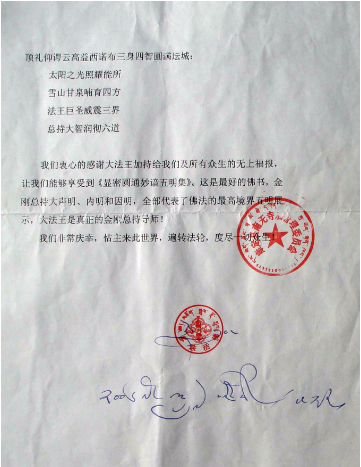 顶礼仰谓云高益西诺布三身四智圆满坛城：
太阳之光照耀能所
雪山甘泉哺育四方
法王巨圣威震三界
总持大智润彻六道
我们衷心的感谢大法王加持给我们及所有众生的无上福报，
让我们能够享受到《显密圆通妙谙五明集》。这是最好的佛书，金
刚总持大声明、内明和因明，全部代表了佛法的最高境界五明展
示，大法王是真正的金刚总持导师！
我们非常庆幸，怙主来此世界，遍转法轮，度尽一切众生！